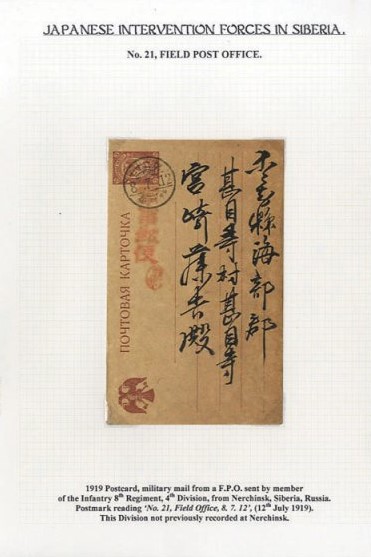 JAPANESE INTERVENTION FORCES IN SIBERIA.
No. 21, FIELD POST OFFICE.
海部郡
甚目寺村甚目寺
宮崎藤吉殿
ПОЧТОВАЯ КАРТОЧКА
郵便
1919 Postcard, military mail from a F.P.O. sent by member
of the Infantry 8th Regiment, 4th Division, from Nerchinsk, Siberia, Russia.
Postmark reading ‘No. 21, Field Office, 8. 7. 12’, (12th July 1919).
This Division not previously recorded at Nerchinsk.